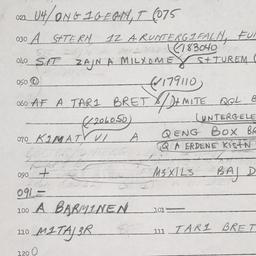 021 U4/ONG1GEGN,T (075
030 A STTERN 12 ARUNTERG1FALN, FUI
(183040
040 SIT ZAJNA MILXOME S+TUREM (
050 (179110)
060 AF A TAR1 BRET X/D+MITE QGL B
(206050) (UNTERGELE
070 K1MAT VI A QENG BOX BA
(Q A ERDENE KIS+N
090 + M3X1LS BAJ D
091 -
100 A BARM1NEN 101 -
110 M1TAJ3R 111 TAR1 BRET
120 0